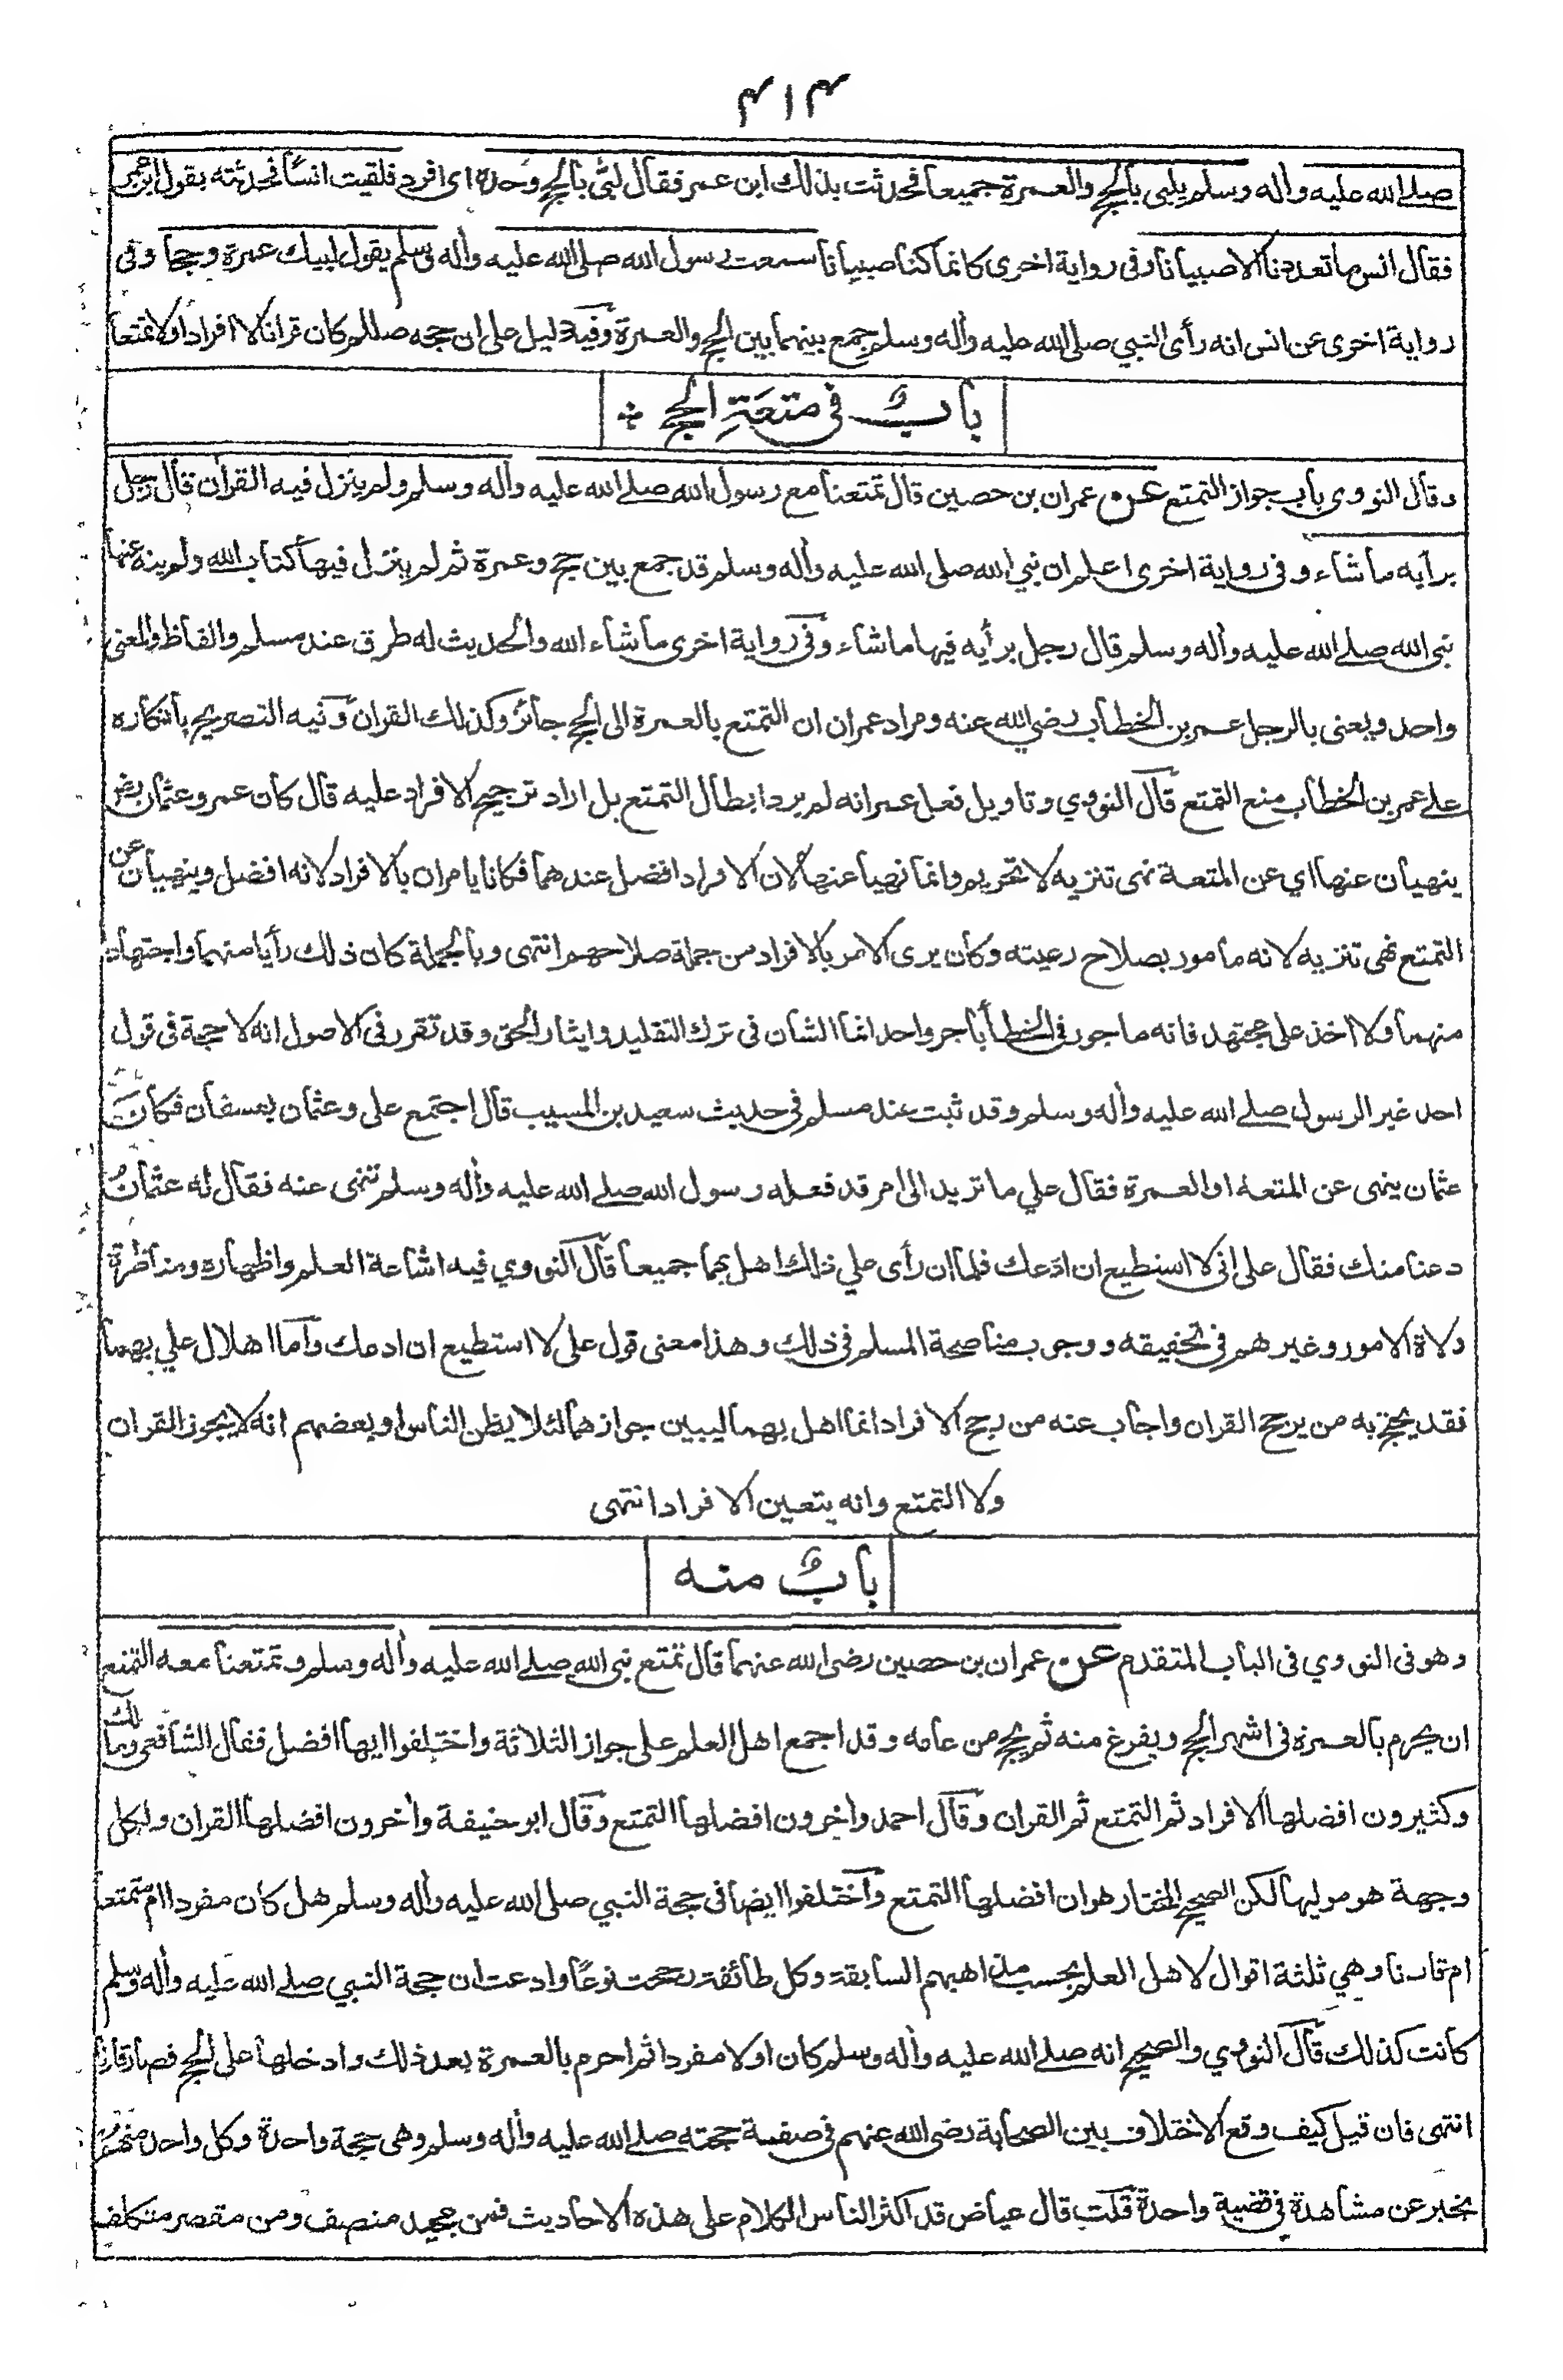 ٤١٤
صلى الله عليه وأله وسلم يلبي بالحج والعمرة جميعا فحدثت بذلك ابن عمر فقال لبى بالحج وحده اى افرد فلقيت انسا فحدثته بقول ابن عمر
فقال انس ما تعدوننا الا صبيانا وفى رواية اخرى كانما كنا صبيانا سمعت رسول الله صلى الله عليه وأله وسلم يقول لبيك عمرة وحجا وفى
رواية اخرى عن انس انه رأى النبي صلى الله عليه وأله وسلم جمع بينهما بين الحج والعمرة وفيه دليل على ان حجه صللم كان قرانا لا افرادا ولا تمتعا
باب فى متعة الحج
وقال النووي باب جواز التمتع عن عمران بن حصين قال تمتعنا مع رسول الله صلى الله عليه وأله وسلم ولم ينزل فيه القرأن قال رجل
برأيه ما شاء وفى رواية اخرى اعلم ان نبي الله صلى الله عليه وأله وسلم قد جمع بين حج وعمرة ثم لم ينزل فيها كتاب الله ولم ينه عنها
نبي الله صلى الله عليه وأله وسلم قال رجل برأيه فيها ما شاء وفى رواية اخرى ما شاء الله والحديث له طرق عند مسلم والفاظ والمعنى
واحد ويعنى بالرجل عمر بن الخطاب رضي الله عنه ومراد عمران ان التمتع بالعمرة الى الحج جائز وكذلك القران وفيه التصريح بانكاره
على عمر بن الخطاب منع التمتع قال النووي وتاويل فعل عمر انه لم يرد ابطال التمتع بل اراد ترجيح الافراد عليه قال كان عمر وعثمان رض
ينهيان عنها اي عن المتعة نهى تنزيه لا تحريم وانما نهيا عنها لان الافراد افضل عندهما فكانا يامران بالافراد لانه افضل وينهيان عن
التمتع نهى تنزيه لانه مامور بصلاح رعيته وكان يرى الامر بالافراد من جملة صلاحهم انتهى وبالجملة كان ذلك رأيا منهما واجتهاد
منهما ولا اخذ على مجتهد فانه ماجور فى الخطأ باجر واحد انما الشان فى ترك التقليد وايثار الحق وقد تقرر فى الاصول انه لا حجة فى قول
احد غير الرسول صلى الله عليه وأله وسلم وقد ثبت عند مسلم فى حديث سعيد بن المسيب قال اجتمع على وعثمان بعسفان فكان
عثمان ينهى عن المتعة او العمرة فقال علي ما تريد الى امر قد فعله رسول الله صلى الله عليه وأله وسلم تنهى عنه فقال له عثمان
دعنا منك فقال على انى لا استطيع ان ادعك فلما ان رأى علي ذلك اهل بهما جميعا قال النووي فيه اشاعة العلم واظهاره ومناظرة
ولاة الامور وغيرهم فى تحقيقه ووجوب مناصحة المسلم فى ذلك وهذا معنى قول على لا استطيع ان ادعك واما اهلال علي بهما
فقد يحتج به من يرجح القران واجاب عنه من رجح الافراد انما اهل بهما ليبين جوازهما لئلا يظن الناس او بعضهم انه لا يجوز القران
ولا التمتع وانه يتعين الافراد انتهى
باب منه
وهو فى النووي فى الباب المتقدم عن عمران بن حصين رضى الله عنهما قال تمتع نبي الله صلى الله عليه وأله وسلم وتمتعنا معه التمتع
ان يحرم بالعمرة فى اشهر الحج ويفرغ منه ثم يحج من عامه وقد اجمع اهل العلم على جواز الثلاثة واختلفوا ايها افضل فقال الشافعى ومالك
وكثيرون افضلها الافراد ثم التمتع ثم القران وقال احمد وأخرون افضلها التمتع وقال ابو حنيفة وأخرون افضلها القران ولكل
وجهة هو موليها لكن الصحيح المختار هو ان افضلها التمتع واختلفوا ايضا فى حجة النبي صلى الله عليه وأله وسلم هل كان مفردا ام متمتعا
ام قارنا وهي ثلثة اقوال لاهل العلم بحسب مذاهبهم السابقة وكل طائفة رجحت نوعا وادعت ان حجة النبي صلى الله عليه وأله وسلم
كانت كذلك قال النووي والصحيح انه صلى الله عليه وأله وسلم كان اولا مفردا ثم احرم بالعمرة بعد ذلك وادخلها على الحج فصار قارنا
انتهى فان قيل كيف وقع الاختلاف بين الصحابة رضى الله عنهم فى صفة حجته صلى الله عليه وأله وسلم وهى حجة واحدة وكل واحد منهم
يخبر عن مشاهدة فى قضية واحدة قلت قال عياض قد اكثر الناس الكلام على هذه الاحاديث فمن مجيد منصف ومن مقصر متكلف